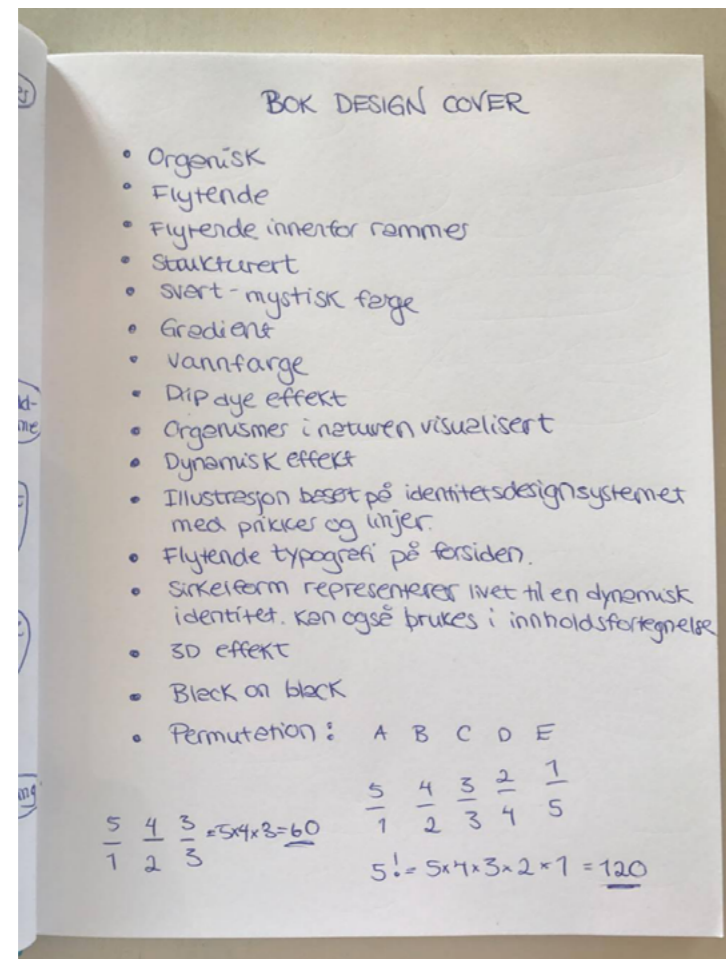 BOK DESIGN COVER
• Organisk
• Flytende
• Flytende innenfor rammes
• Strukturert
• Svart-mystisk farge
• Gradient
• Vannfarge
• Dip dye effekt
• Organismes i naturen visualisert
• Dynamisk effekt
• Illustrasjon basert på identitetsdesignsystemet
med prikker og linjer.
• Flytende typografi på forsiden.
• Sirkelform representerer livet til en dynamisk
identitet. Kan også brukes i innholdsfortegnelse
• 3D effekt
• Black on black
• Permutation: A B C D E
5/1 4/2 3/3 2/4 1/5
5/1 4/2 3/3 =5x4x3=60
5!= 5x4x3x2x1 = 120